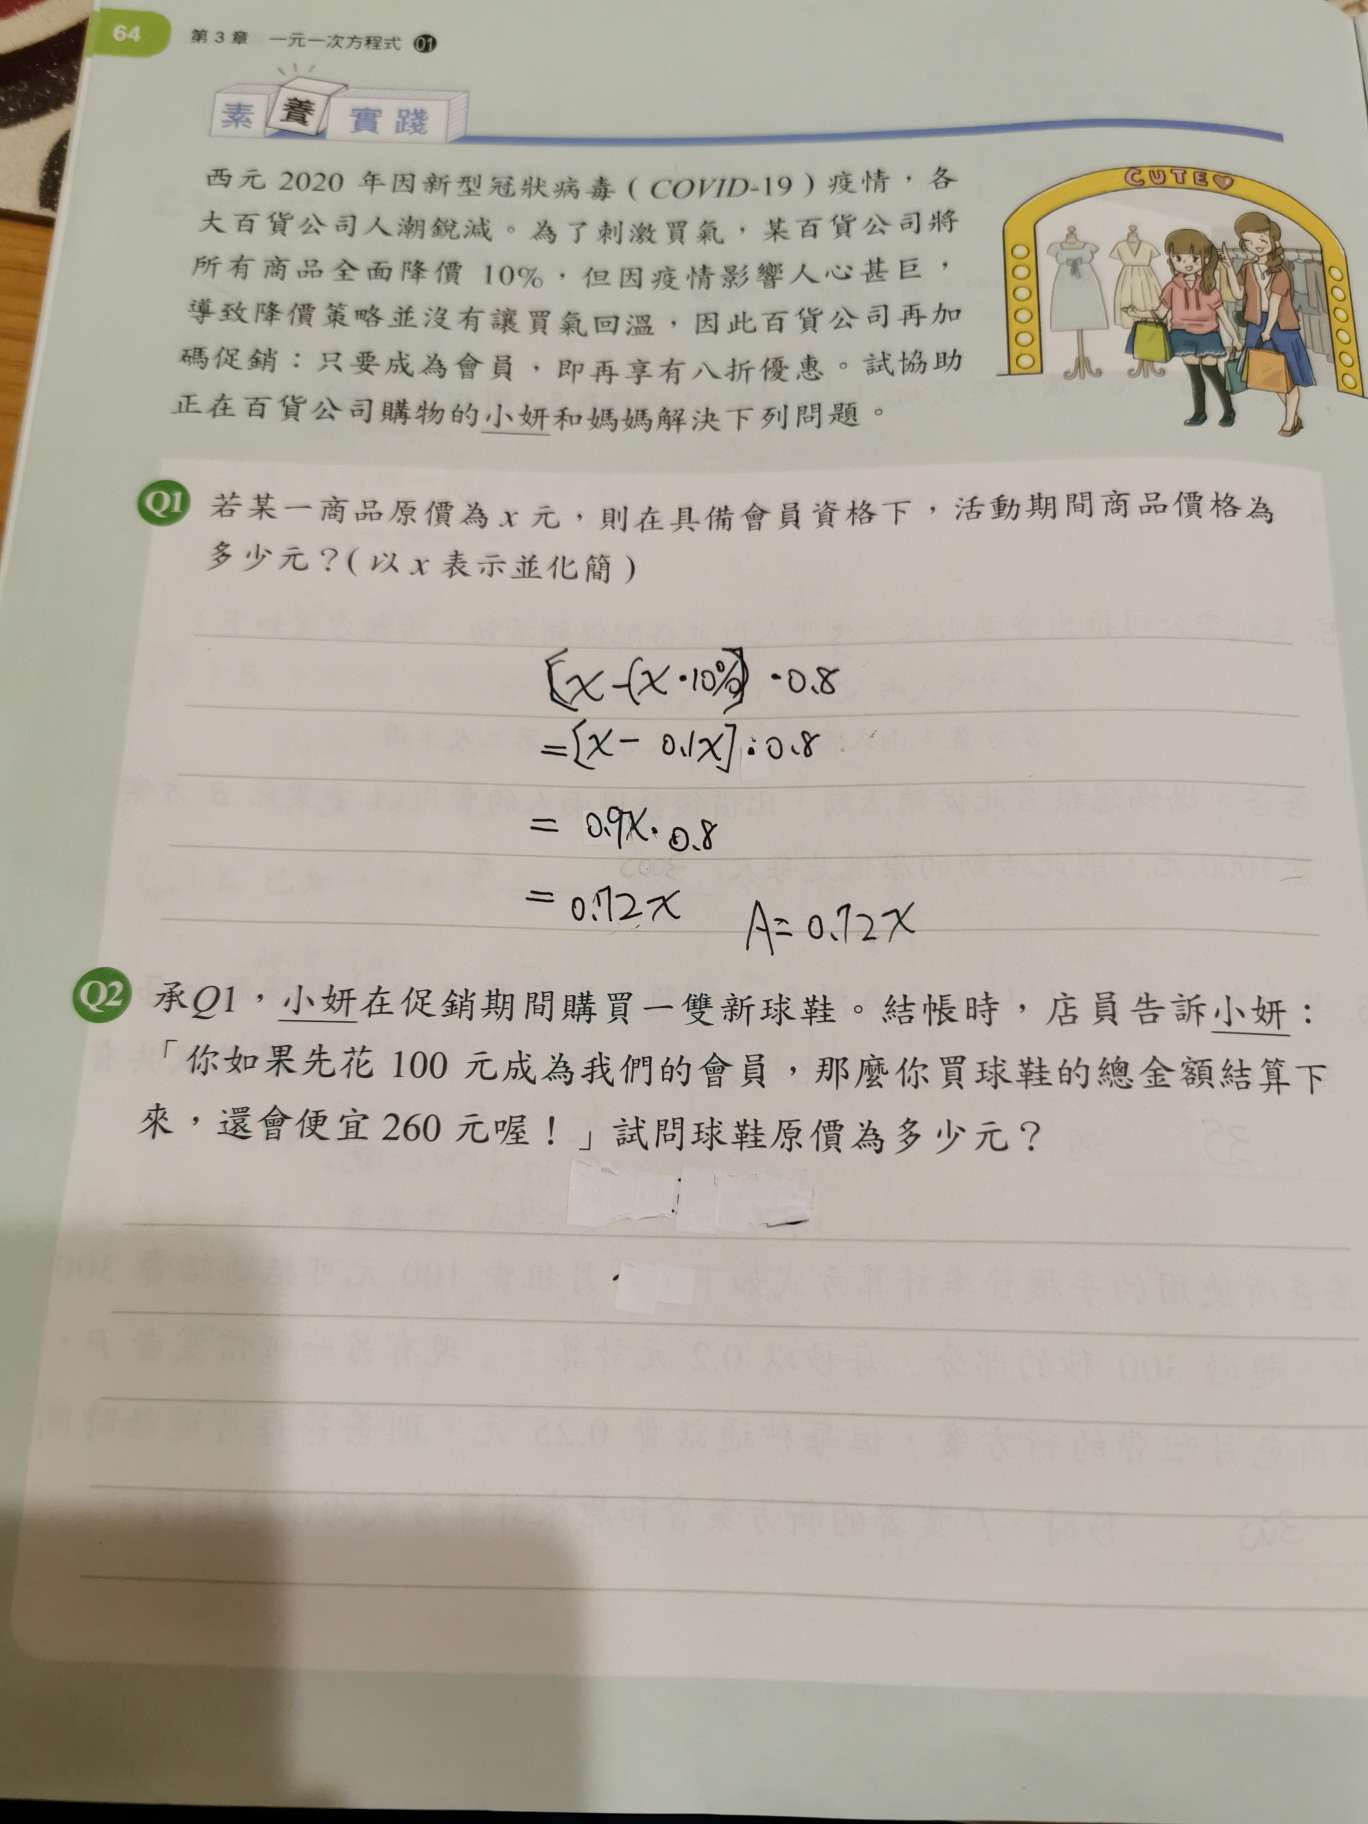 64 第3章 一元一次方程式 01
素養實踐
CUTE♡
西元 2020 年因新型冠狀病毒(COVID-19)疫情，各
大百貨公司人潮銳減。為了刺激買氣，某百貨公司將
所有商品全面降價 10%，但因疫情影響人心甚巨，
導致降價策略並沒有讓買氣回溫，因此百貨公司再加
碼促銷：只要成為會員，即再享有八折優惠。試協助
正在百貨公司購物的小妍和媽媽解決下列問題。
Q1 若某一商品原價為 x 元，則在具備會員資格下，活動期間商品價格為
多少元？(以 x 表示並化簡)
[x-(x·10%)]·0.8
=[x-0.1x]·0.8
=0.9x·0.8
=0.72x A=0.72x
Q2 承Q1，小妍在促銷期間購買一雙新球鞋。結帳時，店員告訴小妍：
「你如果先花 100 元成為我們的會員，那麼你買球鞋的總金額結算下
來，還會便宜 260 元喔！」試問球鞋原價為多少元？